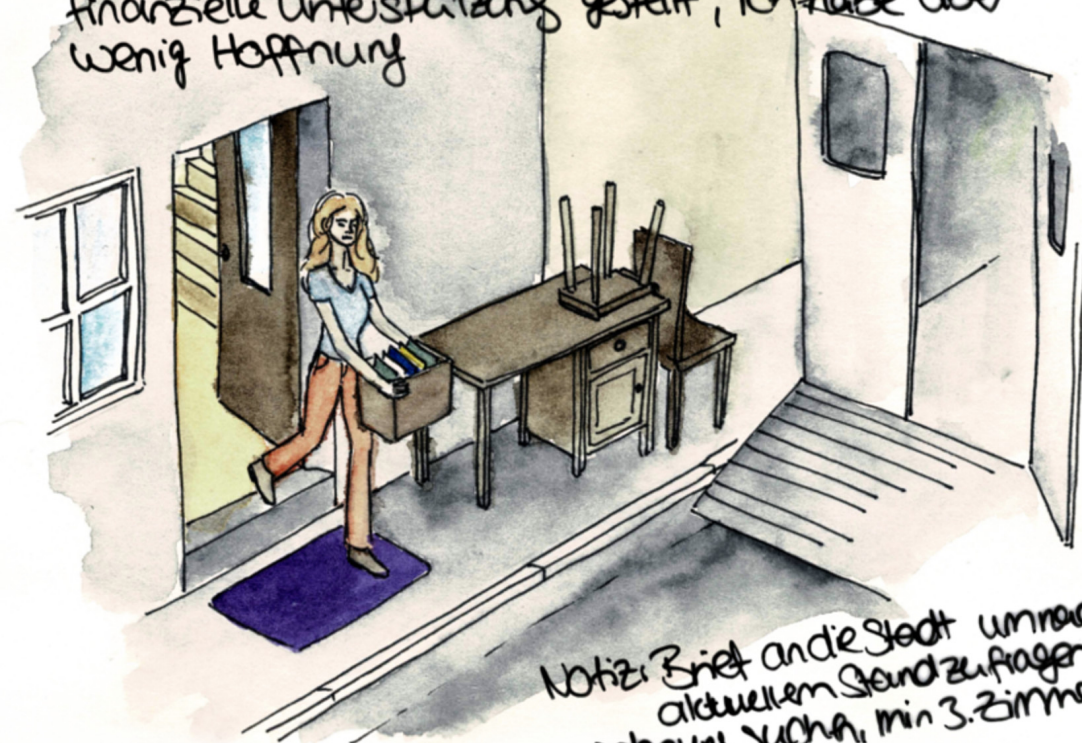 finanzielle Unterstützung gestellt, ich habe aber
wenig Hoffnung
Notiz: Brief an die Stadt um nach
aktuellem Stand zu fragen
suchen, min 3. Zimme